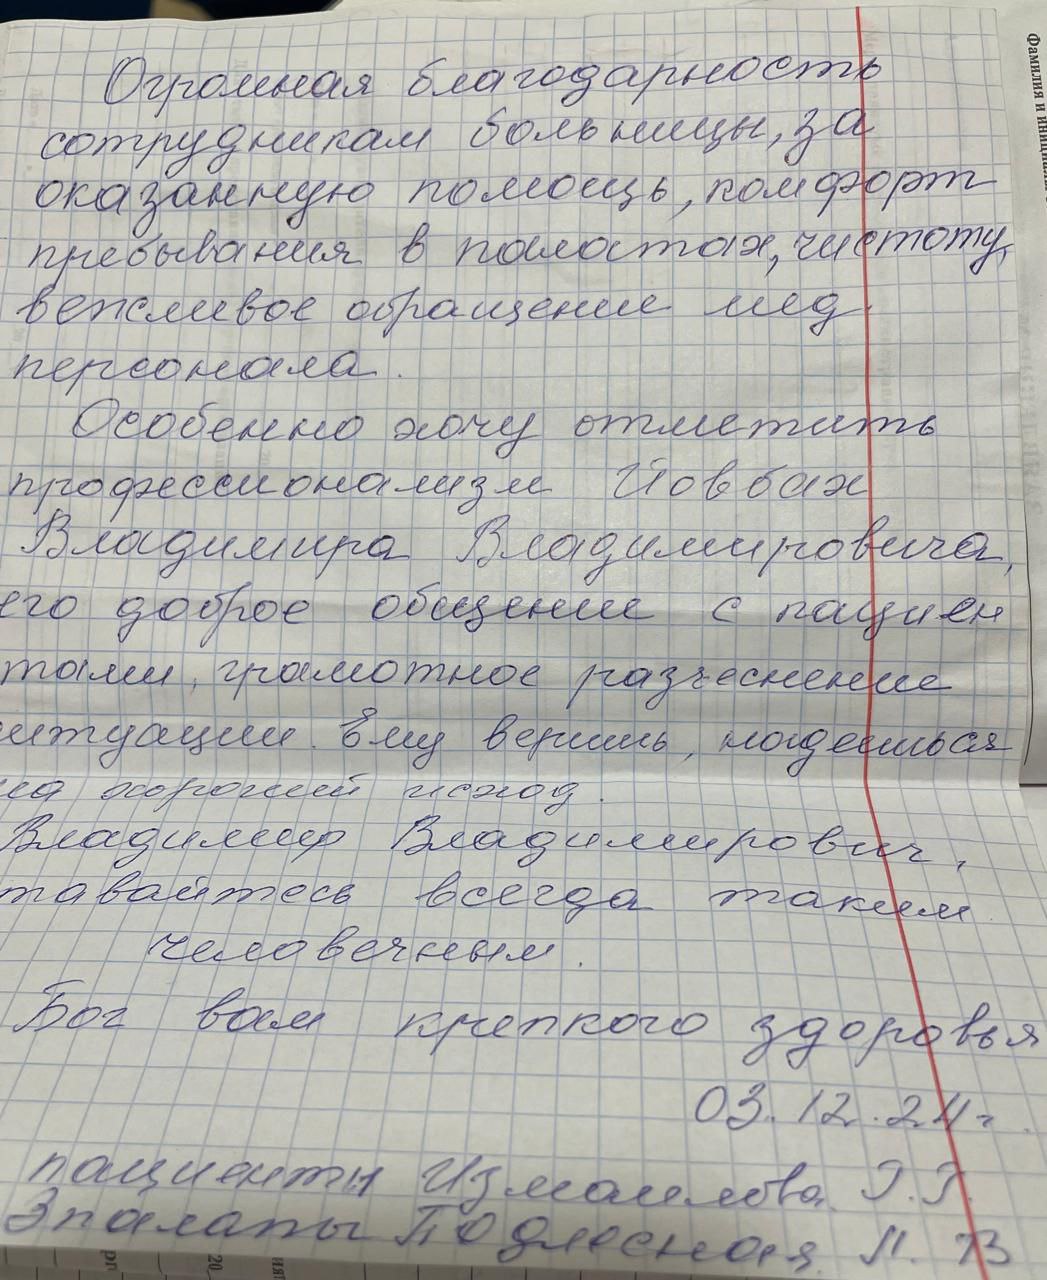 Огромная благодарность
сотрудникам больницы, за
оказанную помощь, комфорт
пребывания в палатах, чистоту,
вежливое обращение мед
персонала.
Особенно хочу отметить
профессионализм Йовбах
Владимира Владимировича,
его доброе общение с пациен
тами, грамотное разъеснение
итуации. Ему веришь, надеешься
на хороший исход.
Владимир Владимирович,
тавайтесь всегда таким
человечным.
Бог вам крепкого здоровья
03.12.24г.
пациенты Измаилова Г.Г.
3 палаты Подлесная Л. В
Фамилия и инициалы